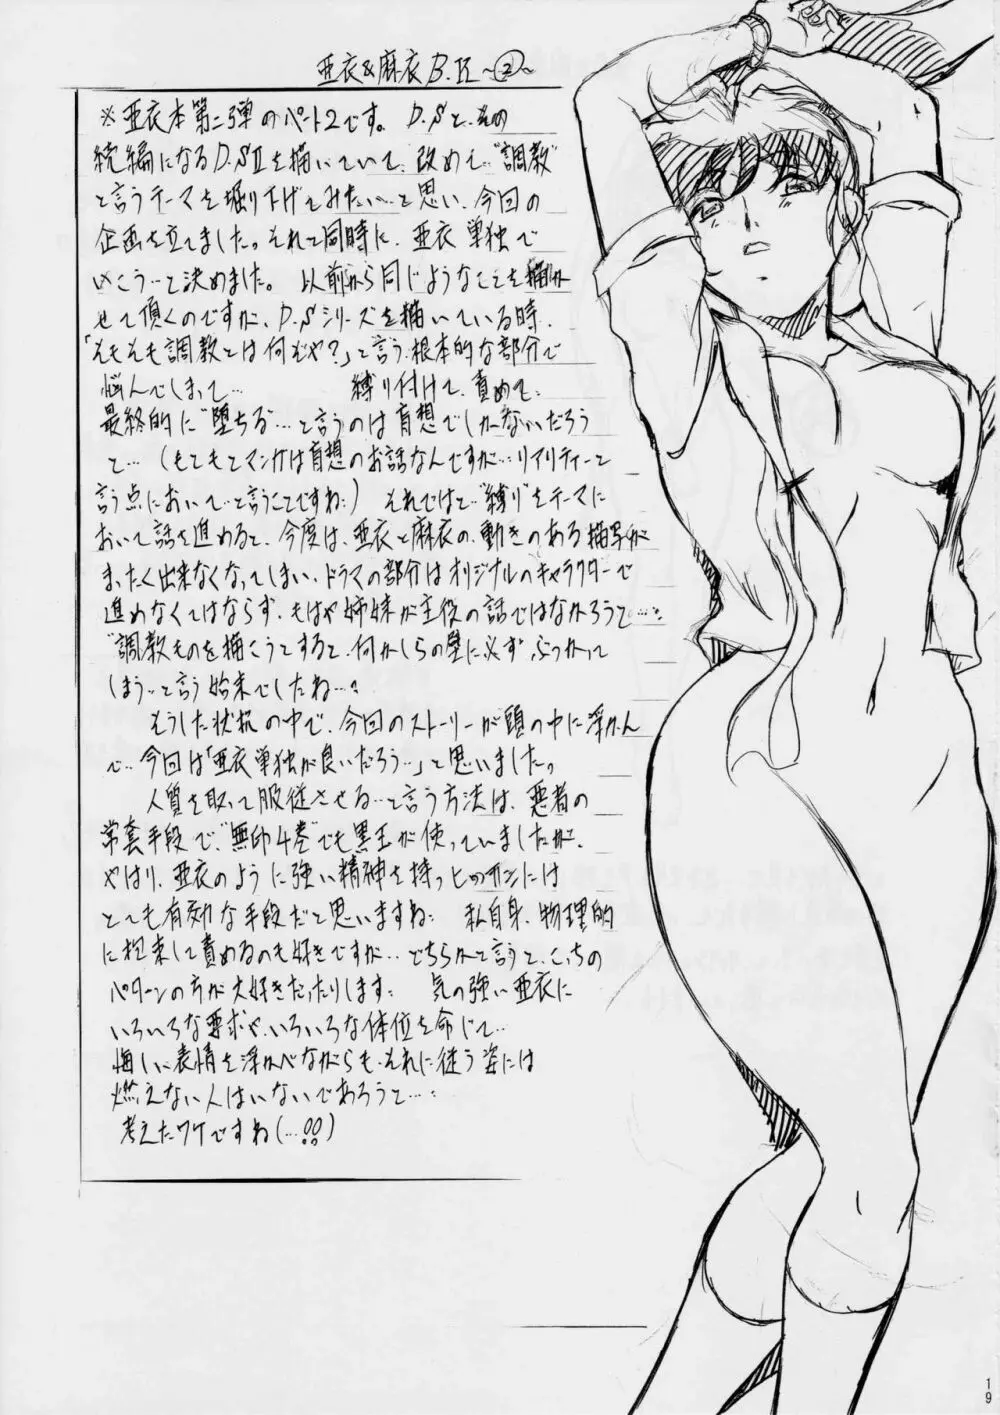 亜衣&麻衣 B.R ~②~
※亜衣本第二弾のパート2です。 D.Sと、その
続編になるD.SⅡを描いていて、改めて"調教"
と言うテーマを掘り下げてみたい…と思い、今回の
企画を立てました。それと同時に、亜衣単独で
いこう…と決めました。 以前から同じようなことを描か
せて頂くのですが、D.Sシリーズを描いている時、
「そもそも調教とは何ぞや?」と言う、根本的な部分で
悩んでしまって… 縛り付けて、責めて、
最終的に"堕ちる"…と言うのは盲想でしかないだろう
と…(もともとマンガは盲想のお話なんですが…リアリティーと
言う点において…と言うことですね;) それではと"縛り"をテーマに
おいて話を進めると、今度は、亜衣と麻衣の、動きのある描写が
まったく出来なくなってしまい、ドラマの部分はオリジナルのキャラクターで
進めなくてはならず、もはや姉妹が主役の話ではなかろうと…;
"調教ものを描こうとすると、何かしらの壁に必ずぶつかって
しまう…と言う始末でしたね…;
そうした状況の中で、今回のストーリーが頭の中に浮かん
で…今回は「亜衣単独が良いだろう…」と思いました。
人質を取って服従させる…と言う方法は、悪者の
常套手段で、"無印4巻"でも黒王が使っていましたが、
やはり、亜衣のように強い精神を持つヒロインには
とても有効な手段だと思いますね; 私自身、物理的
に拘束して責めるのも好きですが…どちらかと言うと、こっちの
パターンの方が大好きだったりします; 気の強い亜衣に
いろいろな要求や、いろいろな体位を命じて…
悔しい表情を浮かべながらも、それに従う姿には
燃えない人はいないであろうと…;
考えたワケですね(…!!)
19